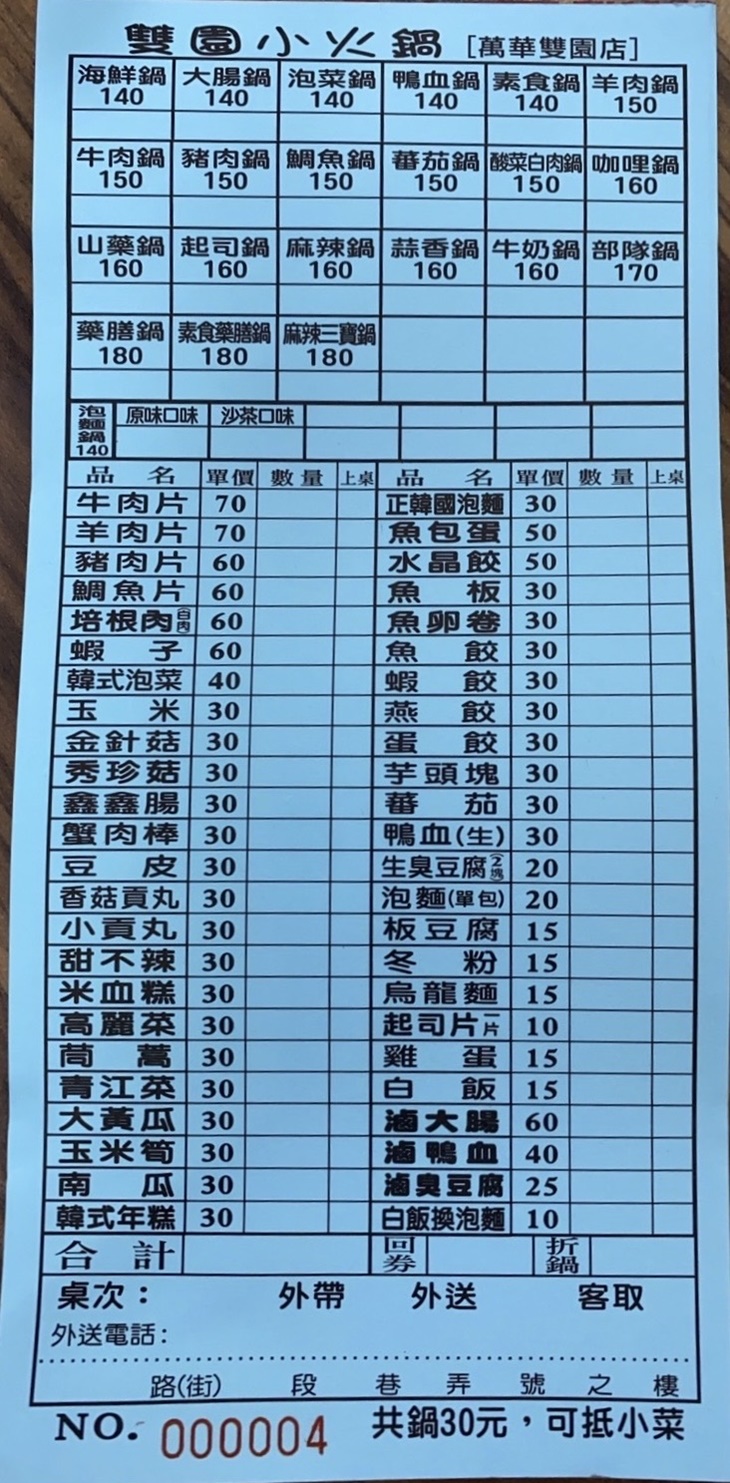 雙園小火鍋 [萬華雙園店]
海鮮鍋 大腸鍋 泡菜鍋 鴨血鍋 素食鍋 羊肉鍋
140 140 140 140 140 150
牛肉鍋 豬肉鍋 鯛魚鍋 蕃茄鍋 酸菜白肉鍋 咖哩鍋
150 150 150 150 150 160
山藥鍋 起司鍋 麻辣鍋 蒜香鍋 牛奶鍋 部隊鍋
160 160 160 160 160 170
藥膳鍋 素食藥膳鍋 麻辣三寶鍋
180 180 180
泡麵鍋 140 原味口味 沙茶口味
品名 單價 數量 上桌 品名 單價 數量 上桌
牛肉片 70 正韓國泡麵 30
羊肉片 70 魚包蛋 50
豬肉片 60 水晶餃 50
鯛魚片 60 魚板 30
培根肉(白肉) 60 魚卵卷 30
蝦子 60 魚餃 30
韓式泡菜 40 蝦餃 30
玉米 30 燕餃 30
金針菇 30 蛋餃 30
秀珍菇 30 芋頭塊 30
鑫鑫腸 30 蕃茄 30
蟹肉棒 30 鴨血(生) 30
豆皮 30 生臭豆腐(2塊) 20
香菇貢丸 30 泡麵(單包) 20
小貢丸 30 板豆腐 15
甜不辣 30 冬粉 15
米血糕 30 烏龍麵 15
高麗菜 30 起司片一片 10
茼蒿 30 雞蛋 15
青江菜 30 白飯 15
大黃瓜 30 滷大腸 60
玉米筍 30 滷鴨血 40
南瓜 30 滷臭豆腐 25
韓式年糕 30 白飯換泡麵 10
合計 回券 折鍋
桌次： 外帶 外送 客取
外送電話：
路(街) 段 巷 弄 號 之 樓
NO. 000004 共鍋30元，可抵小菜